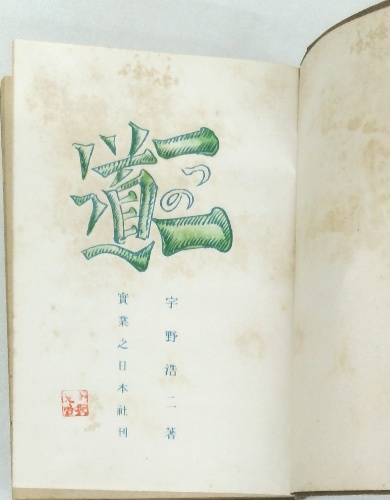 二つの
道
宇野浩二著
實業之日本社刊